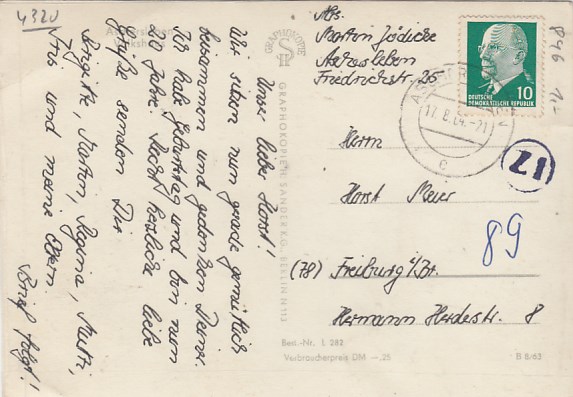 4320
Unser lieber Horst!
Wir sitzen nun gerade gemütlich
beisammen und gedenken Deiner.
Ich habe Geburtstag und bin nun
Jahre. Recht herzliche liebe
Grüße senden Dir
Brigitte, Martin, Regina, Mutti,
Iris und meine Eltern.
Brief folgt!
GRAPHOKOPIE
GRAPHOKOPIE H. SANDER K.G., BERLIN N 113
Abs.
Martin Jödicke
Aschersleben
Friedrichstr. 26
DEUTSCHE
DEMOKRATISCHE REPUBLIK
10
17.8.64.-21
e
P46 1,-
Herrn
17
Horst Meier
89
(78) Freiburg i/Br.
Hermann Herderstr. 8
Best.-Nr. L 282
Verbraucherpreis DM -.25
B 8/63